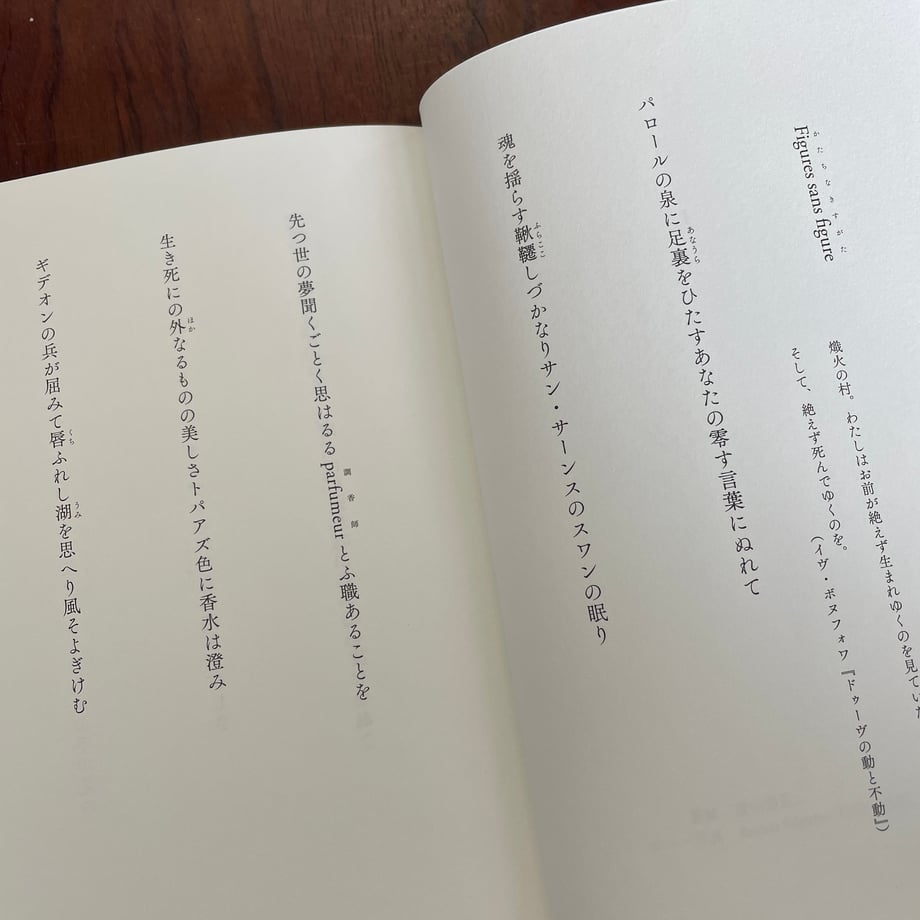 Figures sans figure
かたちなきすがた
熾火の村。わたしはお前が絶えず生まれゆくのを見ていた
そして、絶えず死んでゆくのを。
(イヴ・ボヌフォワ『ドゥーヴの動と不動』)
パロールの泉に足裏をひたすあなたの零す言葉にぬれて
あなうら
魂を揺らす鞦韆しづかなりサン・サーンスのスワンの眠り
ふらここ
先つ世の夢聞くごとく思はるるparfumeurとふ職あることを
調香師
生き死にの外なるものの美しさトパアズ色に香水は澄み
ほか
ギデオンの兵が屈みて唇ふれし湖を思へり風そよぎけむ
くち
うみ